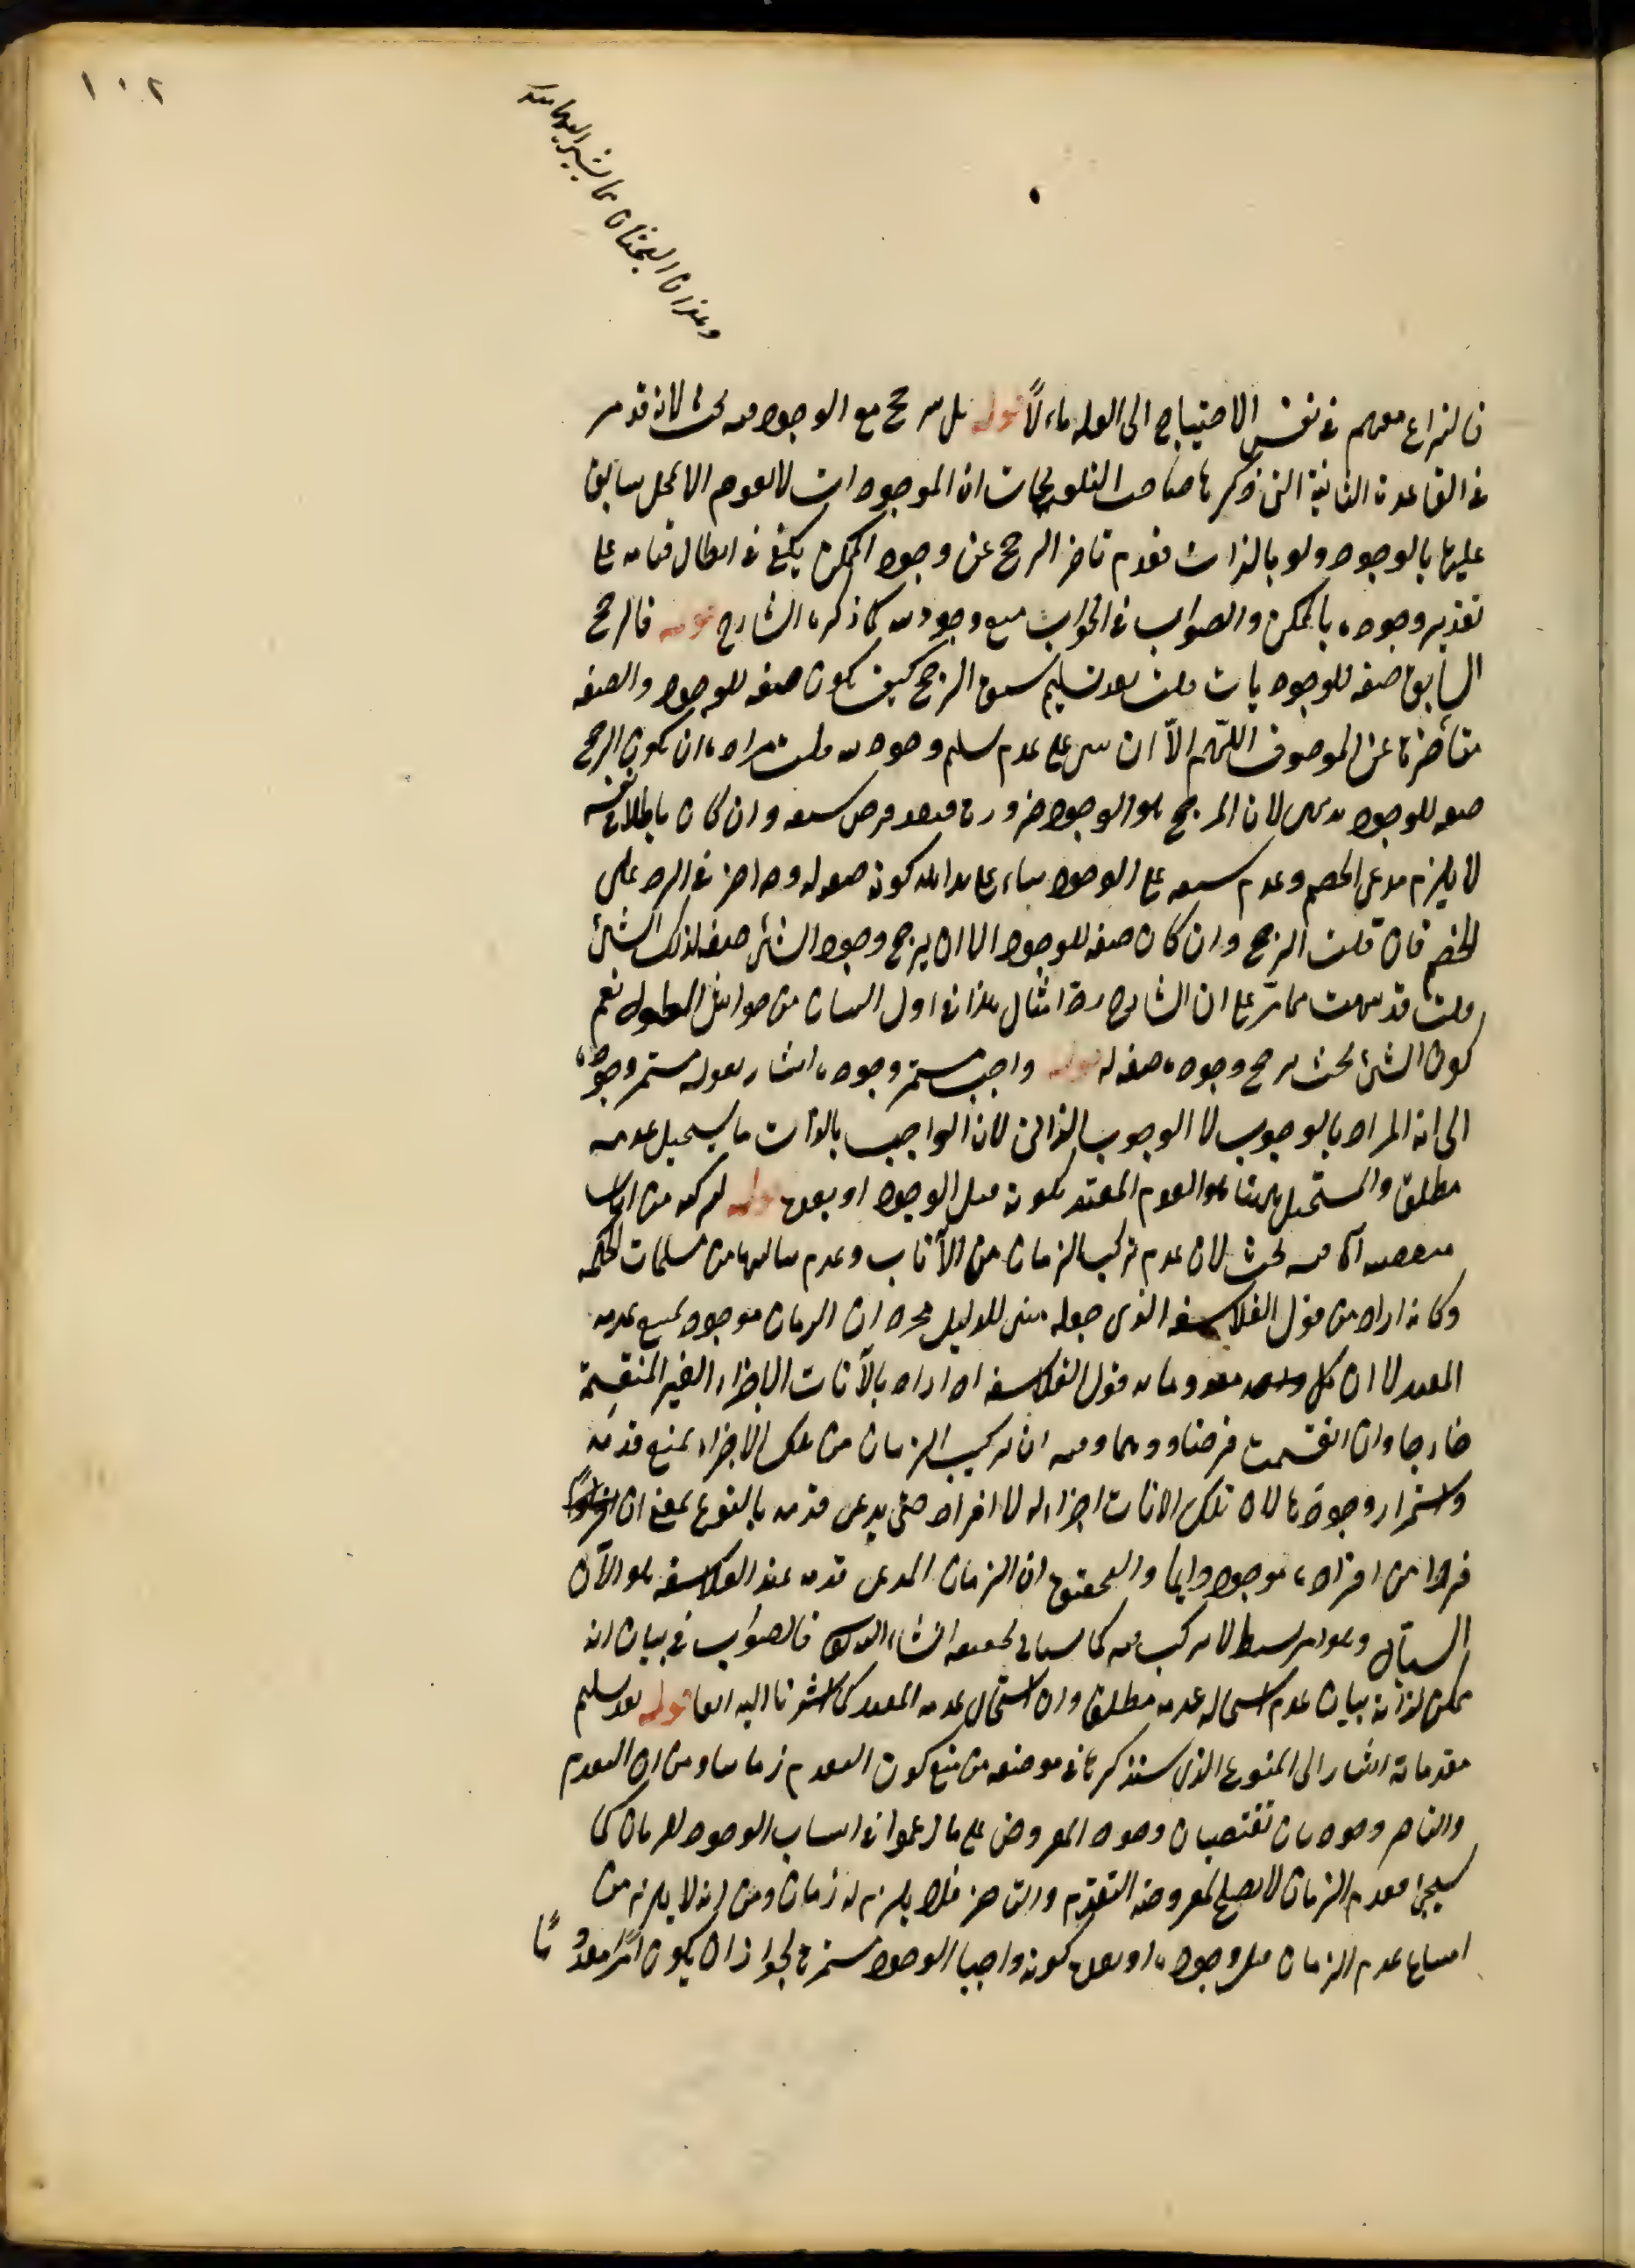 ١٠٢
وهذان البحثان مما يشير اليهما
فالنزاع معهم في نفس الاحتياج الى العلة ماءلاً قوله بل ترجح مع الوجود فيه بحث لانه قد مر
في القاعدة الثانية التي ذكرها صاحب التلويحات ان الموجودات لا تقوم الا بمحل سابق
عليها بالوجود ولو بالذات فعدم تاخر الرجح عن وجود الممكن يكفي في ابطال قيامه على
تقدير وجوده بالممكن والصواب في الجواب منع وجوده كما ذكره الشارح قوله فالرجح
السابق صفة للوجود قلت بعد تسليم سبق الرجح كيف يكون صفة للوجود والصفة
متأخرة عن الموصوف اللّهم الاّ ان على عدم تسليم وجوده قلت مراده ان يكون الرجح
صفة للوجود لان المرجح هو الوجود ضرورة فبعد فرض سبقه وان كان باطلا في نفسه
لا يلزم مدعى الخصم وعدم سبقه على الوجود بناء على كونه صفة له وجه اخر في الرد على
الخصم فان قلت الرجح وان كان صفة للوجود الا ان يرجح وجود الشئ صفة لذلك الشئ
قلت قد مما مرّ على ان الشارح رد امثال هذا في اول البيان من نعم
كون الشئ بحيث يرجح وجوده صفة له قوله واجب مستمر وجوده اشار بقوله مستمر وجوده
الى انه المراد بالوجوب لا الوجوب الذاتي لان الواجب بالذات ما يستحيل عدمه
مطلقا والمستحيل ههنا هو العدم المقيد بكونه قبل الوجود او بعده قوله لتركبه من
آه فيه بحث لان عدم تركب الزمان من الآنات وعدم تتاليها من مسلمات الحكمة
وكانه اراد من قول الفلاسفة الذي جعله مبنى للدليل مجرد ان الزمان موجود يمتنع عدمه
المقيد لا ان كل واحد من مقدماته قول الفلاسفة او اراد بالآنات الاجزاء الغير المنقسمة
خارجا وان انقسمت فرضا ووهما وفيه ان تركيب الزمان من تلك الاجزاء يمنع قدمه
واستمرار وجوده لان تلك الانات اجزاء له لا افراد حتى يدعى قدمه بالنوع بمعنى ان
فردا من افراده موجود دايما والتحقيق ان الزمان المدعى قدمه عند الفلاسفة هو الآن
السيّال وهو امر بسيط لا تركيب فيه كما سياتى تحقيقه انشاء الله فالصواب في بيان انه
ممكن لذاته بيان عدم استحالة عدمه مطلقا وان استحال عدمه المقيد كما اشرنا اليه انفا قوله بعد تسليم
مقدماته اشار الى المنوع الذي سنذكرها في موضعه من منع كون التقدم زمانيا ومن ان التقدم
والتاخر وجوديان تقتضيان وجود المعروض على ما زعموا في اسباب الوجود للزمان كما
سيجئ فعدم الزمان لا يصلح لمعروضية التقدّم والتاخر فلا يلزم له زمان ومن انه لا يلزم من
امتناع عدم الزمان قبل وجوده او بعده كونه واجبا الوجود مستمرا لجواز ان يكون امرا معدوما